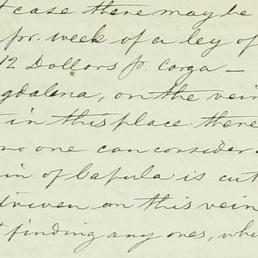 case there may be
for week of a ley of
12 Dollars p. Carga —
gdalena, on the vein
in this place there
no one can consider
in of Capula is cut
driven on this vein
finding any ores, whi